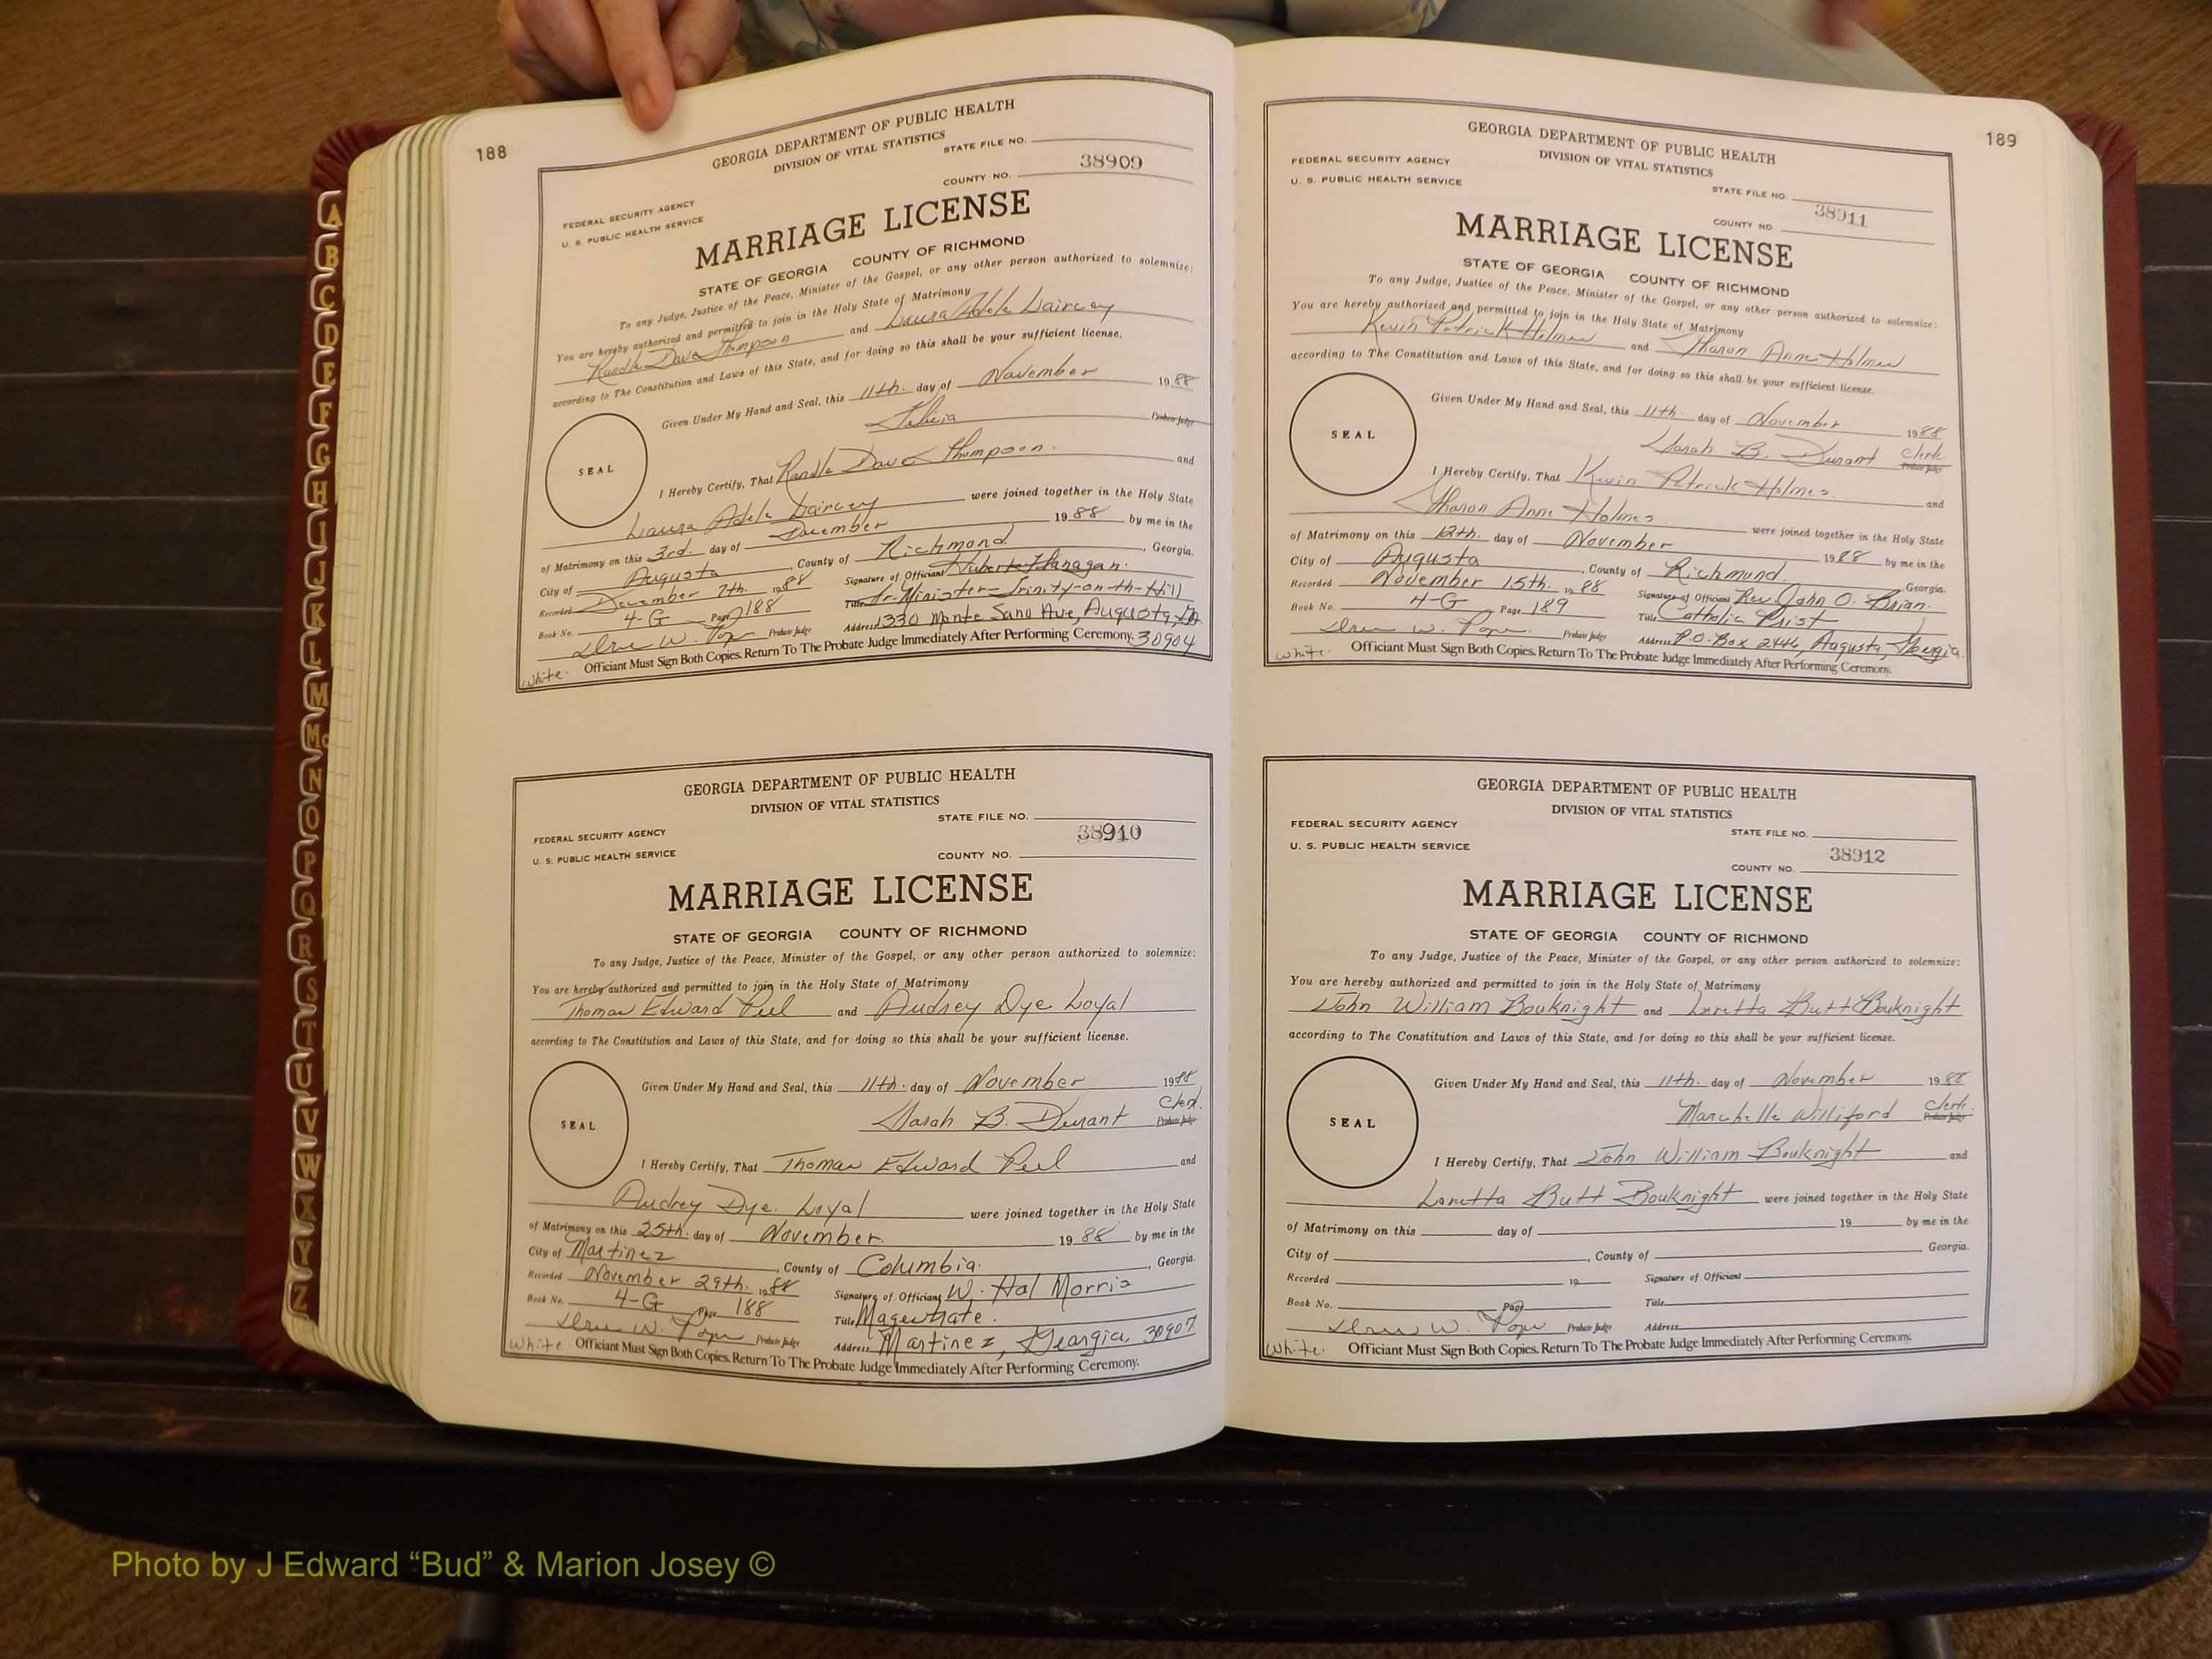 188
GEORGIA DEPARTMENT OF PUBLIC HEALTH
DIVISION OF VITAL STATISTICS
STATE FILE NO.
38909
COUNTY NO.
FEDERAL SECURITY AGENCY
U. S. PUBLIC HEALTH SERVICE
MARRIAGE LICENSE
STATE OF GEORGIA COUNTY OF RICHMOND
To any Judge, Justice of the Peace, Minister of the Gospel, or any other person authorized to solemnize:
You are hereby authorized and permitted to join in the Holy State of Matrimony
Thompson and Laura Adele
according to The Constitution and Laws of this State, and for doing so this shall be your sufficient license.
Given Under My Hand and Seal, this 11th. day of November 1988
Probate Judge
SEAL
I Hereby Certify, That Thompson. and
Laura Adele were joined together in the Holy State
of Matrimony on this 3rd. day of December 1988 by me in the
City of Augusta, County of Richmond, Georgia.
Recorded December 7th. 1988 Signature of Officiant Flanagan.
Book No. 4-G Page 188 Title Sr. Minister-Trinity-on-th-Hill
W. Pope Probate Judge Address 330 Monte Sano Ave, Augusta, Ga. 30904
white. Officiant Must Sign Both Copies. Return To The Probate Judge Immediately After Performing Ceremony.
GEORGIA DEPARTMENT OF PUBLIC HEALTH
DIVISION OF VITAL STATISTICS
STATE FILE NO.
38910
FEDERAL SECURITY AGENCY
U. S. PUBLIC HEALTH SERVICE
COUNTY NO.
MARRIAGE LICENSE
STATE OF GEORGIA COUNTY OF RICHMOND
To any Judge, Justice of the Peace, Minister of the Gospel, or any other person authorized to solemnize:
You are hereby authorized and permitted to join in the Holy State of Matrimony
Thomas Edward Peel and Audrey Dye Loyal
according to The Constitution and Laws of this State, and for doing so this shall be your sufficient license.
Given Under My Hand and Seal, this 11th. day of November 1988
Sarah B. Durant Clerk. Probate Judge
SEAL
I Hereby Certify, That Thomas Edward Peel and
Audrey Dye Loyal were joined together in the Holy State
of Matrimony on this 25th. day of November. 1988 by me in the
City of Martinez, County of Columbia., Georgia.
Recorded November 29th. 1988 Signature of Officiant W. Hal Morris
Book No. 4-G Page 188 Title Magestrate.
W. Pope Probate Judge Address Martinez, Georgia, 30907
white Officiant Must Sign Both Copies. Return To The Probate Judge Immediately After Performing Ceremony.
189
GEORGIA DEPARTMENT OF PUBLIC HEALTH
DIVISION OF VITAL STATISTICS
FEDERAL SECURITY AGENCY
U. S. PUBLIC HEALTH SERVICE
STATE FILE NO.
38911
COUNTY NO.
MARRIAGE LICENSE
STATE OF GEORGIA COUNTY OF RICHMOND
To any Judge, Justice of the Peace, Minister of the Gospel, or any other person authorized to solemnize:
You are hereby authorized and permitted to join in the Holy State of Matrimony
Kevin Patrick Holmes and Sharon Anne Holmes
according to The Constitution and Laws of this State, and for doing so this shall be your sufficient license.
Given Under My Hand and Seal, this 11th day of November 1988
Sarah B. Durant Clerk. Probate Judge
SEAL
I Hereby Certify, That Kevin Patrick Holmes. and
Sharon Anne Holmes were joined together in the Holy State
of Matrimony on this 12th. day of November 1988 by me in the
City of Augusta, County of Richmond. Georgia.
Recorded November 15th. 1988 Signature of Officiant Rev. John O. Brian.
Book No. 4-G Page 189 Title Catholic Priest
W. Pope. Probate Judge Address P.O. Box 2446, Augusta, Georgia.
white. Officiant Must Sign Both Copies. Return To The Probate Judge Immediately After Performing Ceremony.
GEORGIA DEPARTMENT OF PUBLIC HEALTH
DIVISION OF VITAL STATISTICS
FEDERAL SECURITY AGENCY
STATE FILE NO.
U. S. PUBLIC HEALTH SERVICE
38912
COUNTY NO.
MARRIAGE LICENSE
STATE OF GEORGIA COUNTY OF RICHMOND
To any Judge, Justice of the Peace, Minister of the Gospel, or any other person authorized to solemnize:
You are hereby authorized and permitted to join in the Holy State of Matrimony
John William Bouknight and Loretta Butt Bouknight
according to The Constitution and Laws of this State, and for doing so this shall be your sufficient license.
Given Under My Hand and Seal, this 11th. day of November 1988
Marchelle Williford Clerk. Probate Judge
SEAL
I Hereby Certify, That John William Bouknight and
Loretta Butt Bouknight were joined together in the Holy State
of Matrimony on this day of 19 by me in the
City of , County of , Georgia.
Recorded 19 Signature of Officiant
Book No. Page Title
W. Pope Probate Judge Address
white. Officiant Must Sign Both Copies. Return To The Probate Judge Immediately After Performing Ceremony.
A
B
C
D
E
F
G
H
I
J
K
L
M
Mc
N
O
P
Q
R
S
T
U
V
W
X
Y
Z
Photo by J Edward “Bud” & Marion Josey ©